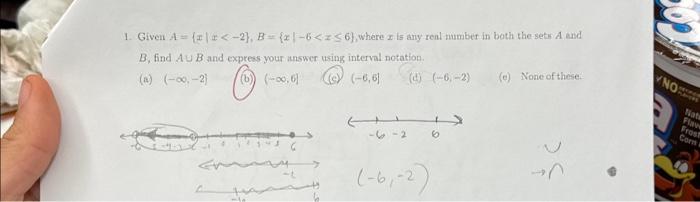 1. Given A = {x | x < −2}, B = {x | −6 < x ≤ 6},where x is any real number in both the sets A and
B, find A ∪ B and express your answer using interval notation.
(a) (−∞, −2] (b) (−∞, 6] (c) (−6, 6] (d) (−6, −2) (e) None of these.
-6 -2 6
6
(-6, -2)
∪
→∩
NO
Natu
Flavo
Frost
Corn